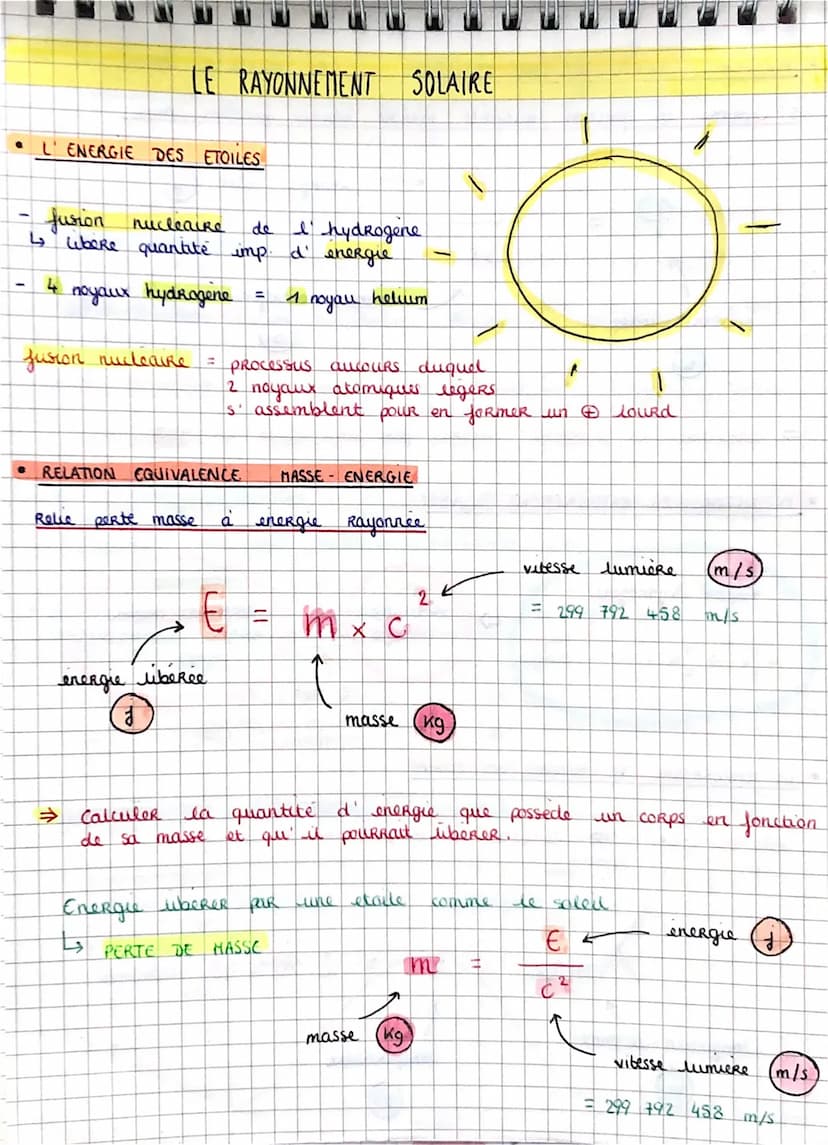 LE RAYONNEMENT SOLAIRE
• L'ENERGIE DES ETOILES
- fusion nucléaire de l'hydrogène
↳ libère quantité imp. d'énergie
- 4 noyaux hydrogène = 1 noyau helium
fusion nucléaire = processus aucours duquel
2 noyaux atomiques légers
s'assemblent pour en former un ⊕ lourd
• RELATION EQUIVALENCE MASSE - ENERGIE
Relie perte masse à energie rayonnée
vitesse lumière m/s
= 299 792 458 m/s
E = m x c²
énergie libérée
j
masse kg
⇒ Calculer la quantité d'énergie que possède un corps en fonction
de sa masse et qu'il pourrait libérer.
Energie libérer par une etoile comme le soleil
↳ PERTE DE MASSE
m = E / c²
énergie j
masse kg
vitesse lumière m/s
= 299 792 458 m/s